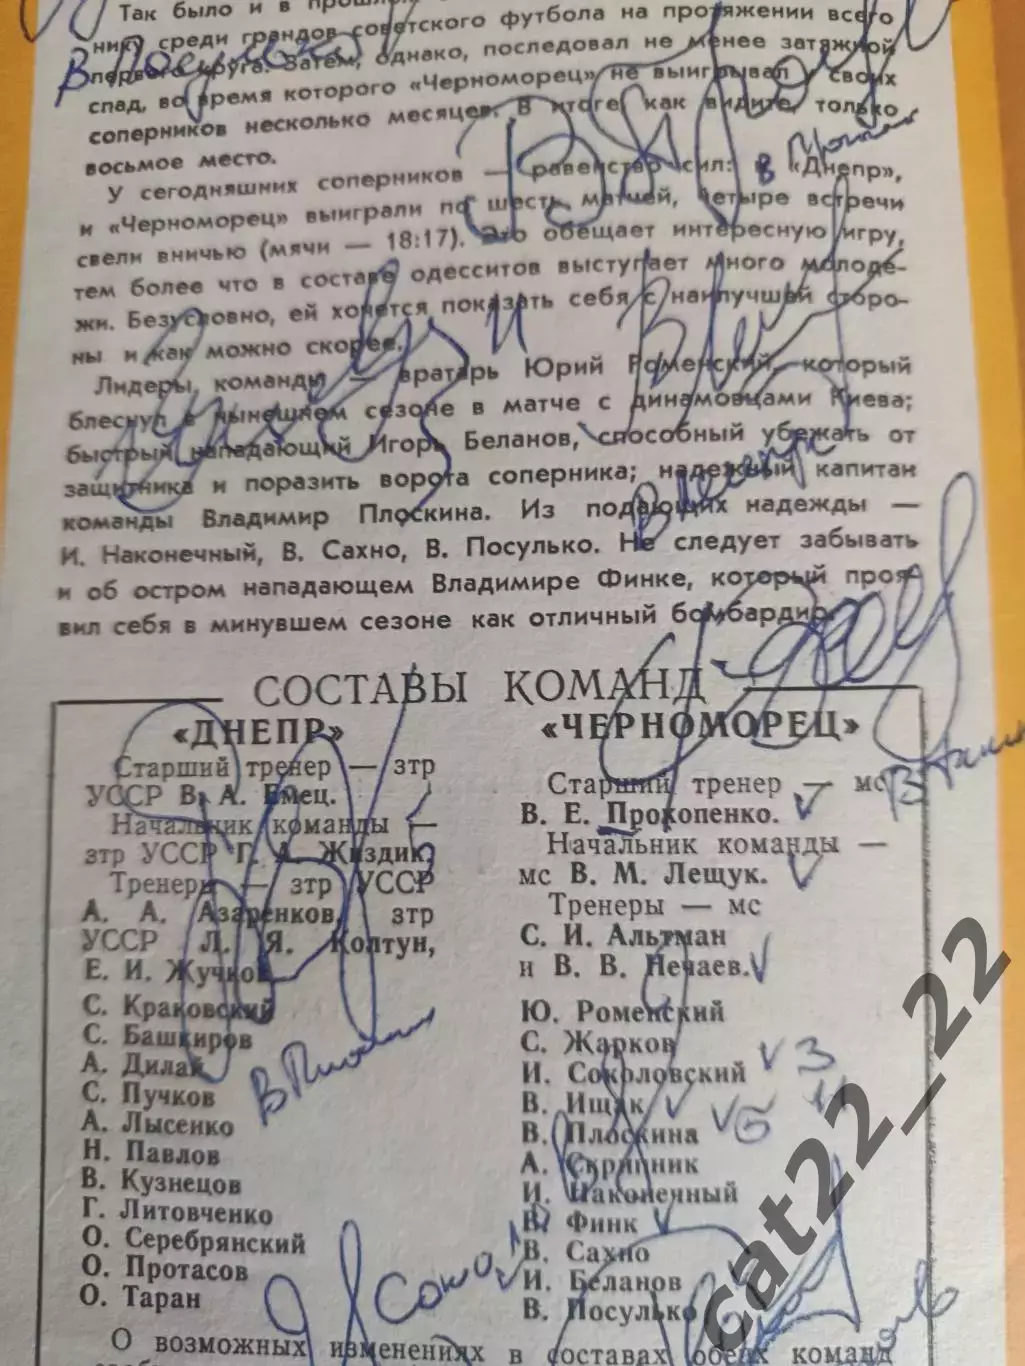 Так было и в прошлом
нику среди грандов советского футбола на протяжении всего
первого круга. Затем, однако, последовал не менее затяжной
спад, во время которого «Черноморец» не выигрывал у своих
соперников несколько месяцев. В итоге, как видите, только
восьмое место.
У сегодняшних соперников — равенство сил: и «Днепр»,
и «Черноморец» выиграли по шесть матчей, четыре встречи
свели вничью (мячи — 18:17). Это обещает интересную игру,
тем более что в составе одесситов выступает много молоде-
жи. Безусловно, ей хочется показать себя с наилучшей сторо-
ны и как можно скорее.
Лидеры команды — вратарь Юрий Роменский, который
блеснул в нынешнем сезоне в матче с динамовцами Киева;
быстрый нападающий Игорь Беланов, способный убежать от
защитника и поразить ворота соперника; надежный капитан
команды Владимир Плоскина. Из подающих надежды —
И. Наконечный, В. Сахно, В. Посулько. Не следует забывать
и об остром нападающем Владимире Финке, который проя-
вил себя в минувшем сезоне как отличный бомбардир.
СОСТАВЫ КОМАНД
«ДНЕПР»
Старший тренер — зтр
УССР В. А. Емец.
Начальник команды —
зтр УССР Г. А. Жиздик.
Тренеры — зтр УССР
А. А. Азаренков, зтр
УССР Л. Я. Колтун,
Е. И. Жучков
С. Краковский
С. Башкиров
А. Дилай
С. Пучков
А. Лысенко
Н. Павлов
В. Кузнецов
Г. Литовченко
О. Серебрянский
О. Протасов
О. Таран
«ЧЕРНОМОРЕЦ»
Старший тренер — мс
В. Е. Прокопенко.
Начальник команды —
мс В. М. Лещук.
Тренеры — мс
С. И. Альтман
и В. В. Нечаев.
Ю. Роменский
С. Жарков
И. Соколовский 3
В. Ищак 4
В. Плоскина 5
А. Скрипник
И. Наконечный
В. Финк
В. Сахно
И. Беланов
В. Посулько
О возможных изменениях в составах обеих команд
cat22_22